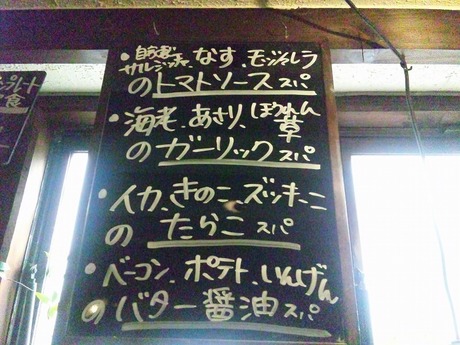 ・自家製サルシッチャ、なす、モッツァレラ
のトマトソース スパ
・海老、あさり、ほうれん草
のガーリック スパ
・イカ、きのこ、ズッキーニ
の たらこ スパ
・ベーコン、ポテト、いんげん
のバター醤油 スパ
プレート
食